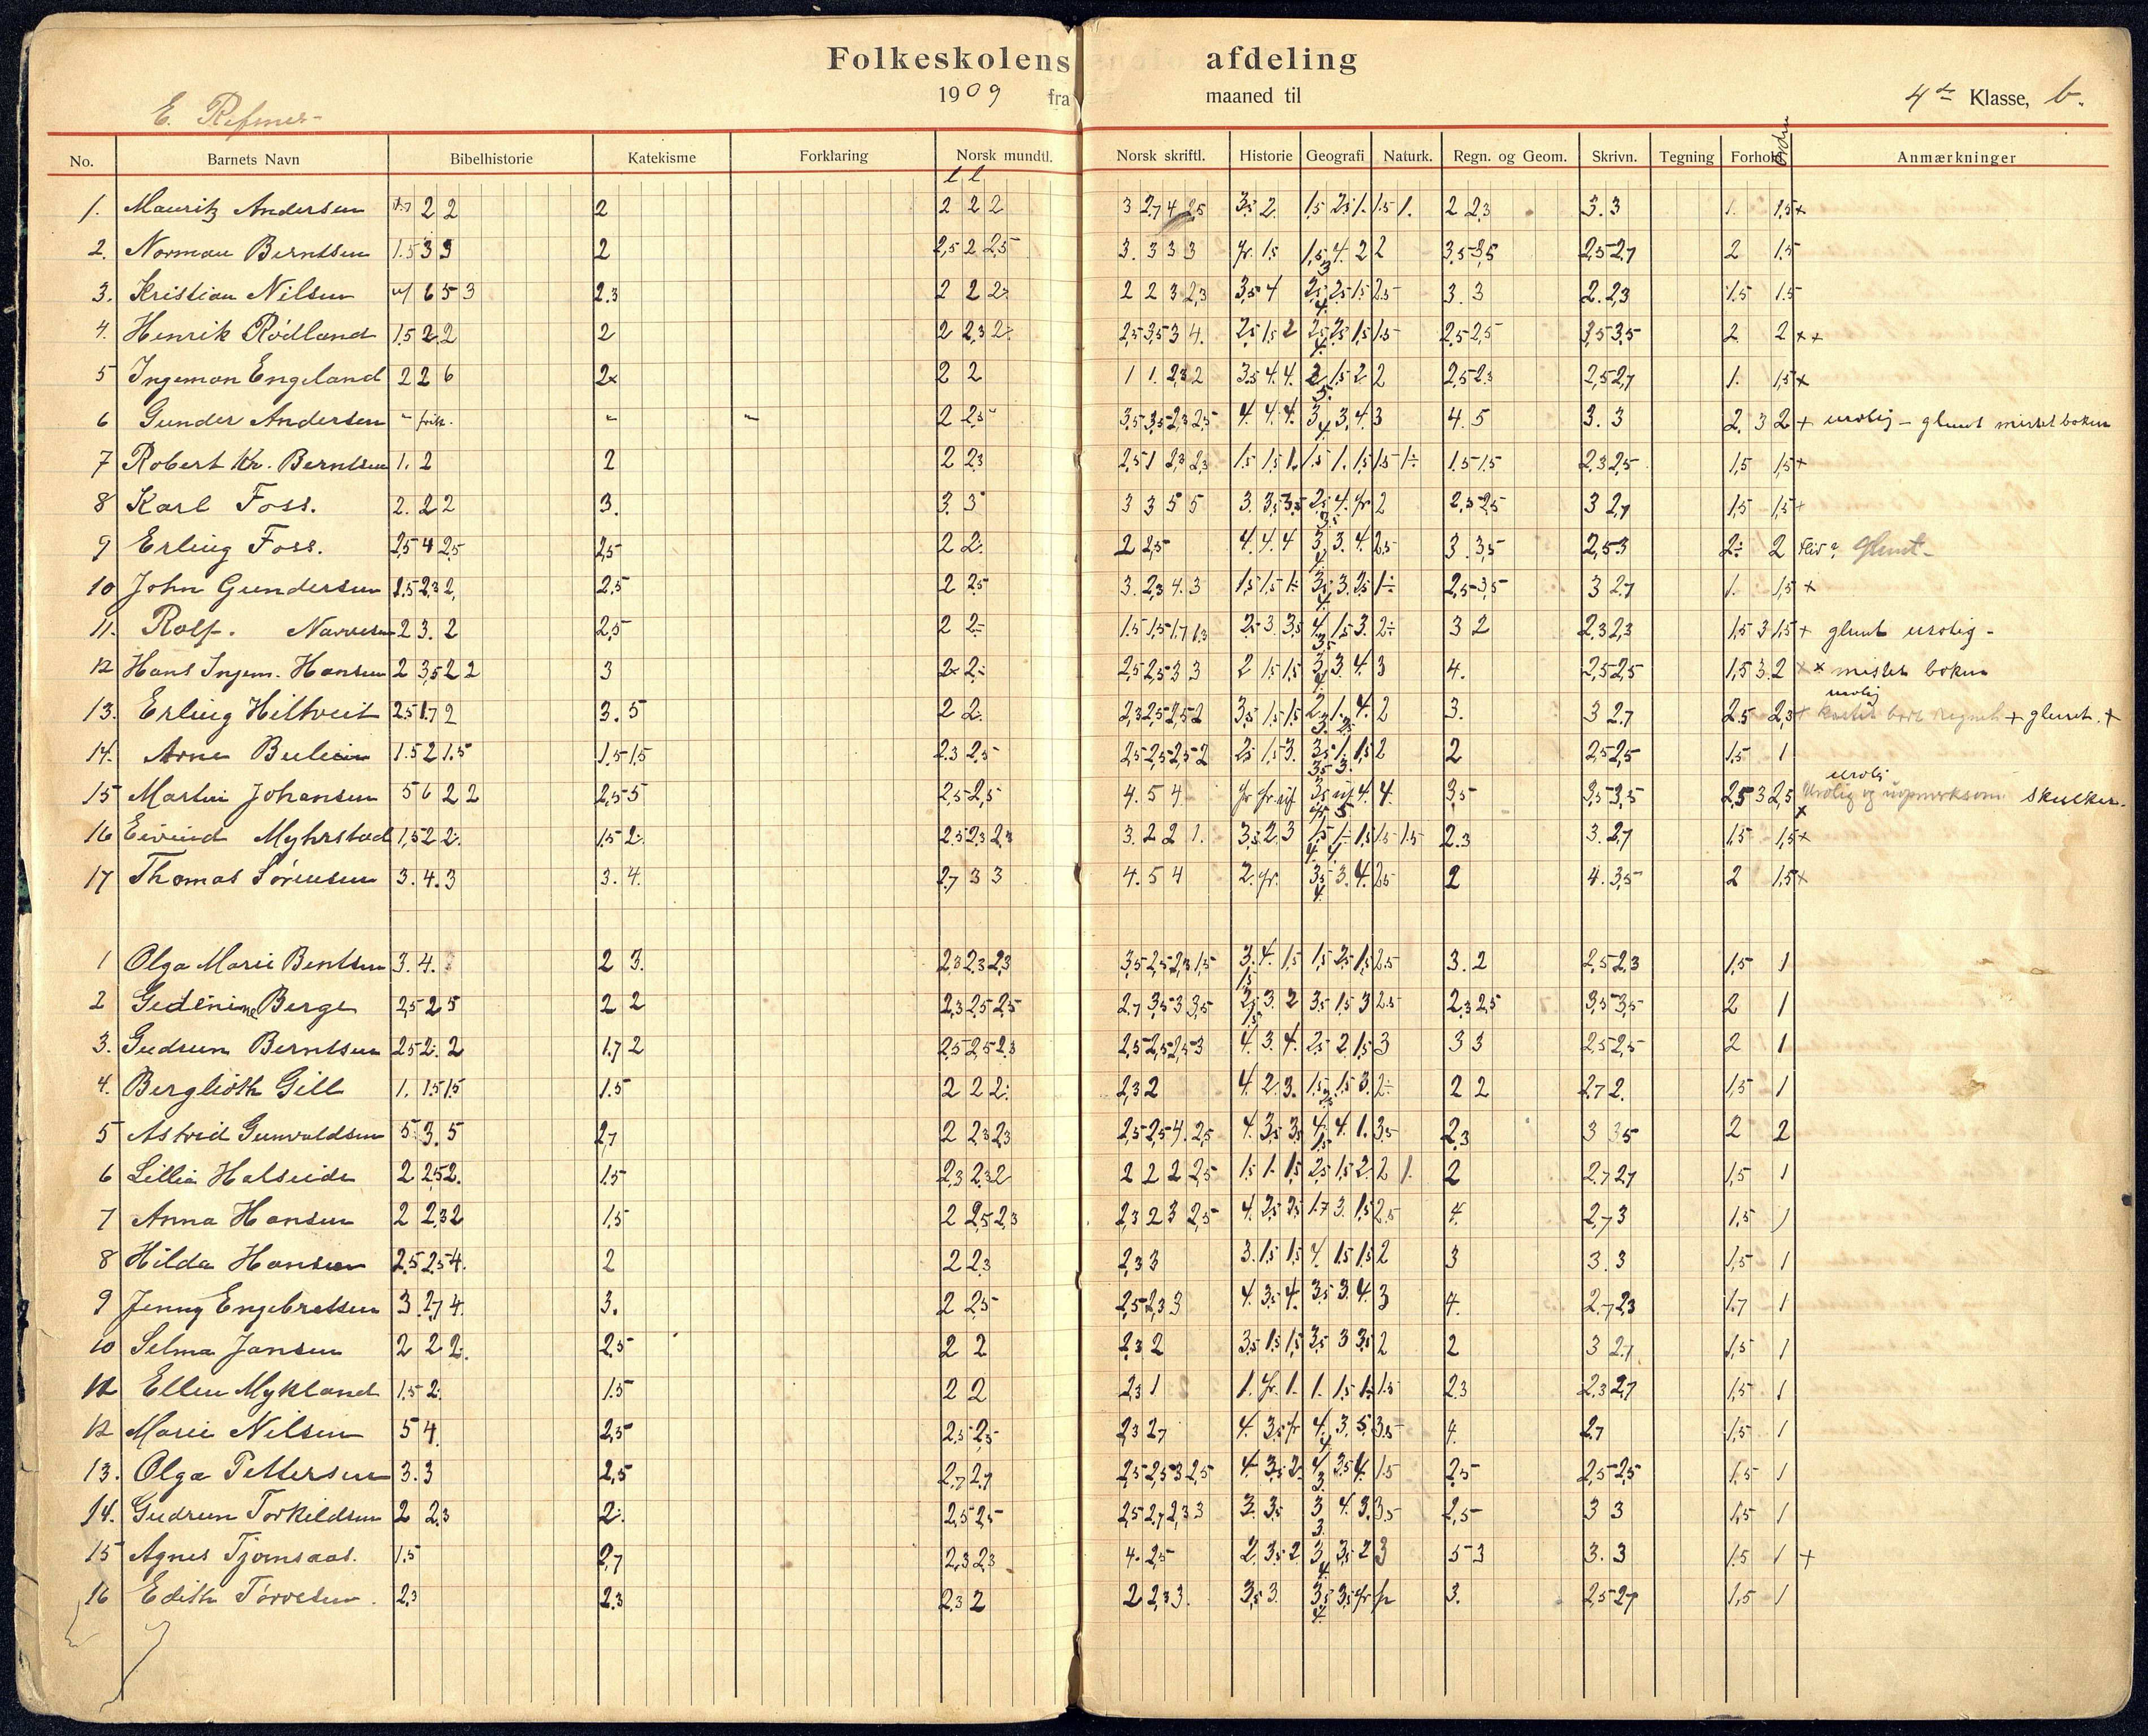 Folkeskolens afdeling
1909 fra maaned til 4de Klasse, b.
E.
No. Barnets Navn Bibelhistorie Katekisme Forklaring Norsk mundtl. Norsk skriftl. Historie Geografi Naturk. Regn. og Geom. Skrivn. Tegning Forhold Orden Anmærkninger
1. Mauritz Andersen 2 2 2 2 2 2 3 2,7 4 2,5 3,5 2. 1,5 2,5 1. 1,5 1. 2 2,3 3.3 1. 1,5 +
2. Norman Berntsen 1.5 3 3 2 2,5 2 2,5 3. 3 3 3 fr. 1,5 1,5 4. 2 2 3,5 3,5 2,5 2,7 2 1.5
3. Kristian Nilsen 6 5 3 2.3 2 2 2 2 2 3 2,3 3,5 4 2,5 2,5 1,5 2,5 3.3 2.2,3 1.5 1.5
4. Henrik Rödland 1.5 2.2 2 2 2,3 2. 2,5 3,5 3 4. 2,5 1,5 2 2,5 2,5 1,5 1,5 2,5 2,5 3,5 3,5 2 2 ++
5 Ingeman Engeland 2 2 6 2x 2 2 1 1. 2,3 2 3,5 4. 4. 2 1,5 2 2 2,5 2.3 2,5 2,7 1. 1,5 x
6 Gunder Andersen " frisk. " " 2 2,5 3,5 3,5 2,3 2,5 4. 4. 4. 3 3. 4. 3 4. 5 3. 3 2. 3 2 + urolig - glemt mistet boken
7 Robert Kr. Berntsen 1. 2 2 2 2,3 2,5 1 2,3 2,3 1,5 1,5 1. 1,5 1. 1,5 1,5 1÷ 1.5 1.5 2,3 2,5 1,5 1,5 +
8 Karl Foss. 2. 2 2 3. 3. 3 3 3 5 5 3. 3,5 3,5 2,5 4. fr 2 2,5 2,5 3 2,7 1,5 1,5 +
9 Erling Foss. 2,5 4 2,5 2,5 2 2. 2 2,5 4. 4. 4 3 3. 4. 2,5 3. 3,5 2,5 3 2÷ 2 Flid? Glemt-
10 John Gundersen 2.5 2.3 2, 2.5 2 2,5 3. 2,3 4. 3 1,5 1,5 1÷ 3,5 3. 2,5 1÷ 2,5 3,5 3 2.7 1. 1,5 +
11. Rolf. 2 3. 2 2,5 2 2÷ 1.5 1,5 1.7 1.3 2,5 3. 3,5 4. 1,5 3. 2÷ 3 2 2,3 2,3 1,5 3 1,5 + glemt urolig -
12 Hans Ingem. Hansen 2 3,5 2 2 3 2x 2÷ 2,5 2,5 3 3 2 1,5 1,5 3 3 4. 3 4. 2,5 2,5 1,5 3. 2 + + mistet boken
urolig
13. Erling Hiltveit 2.5 1.7 2 3. 5 2 2. 2,3 2,5 2,5 2 3,5 1,5 1,5 2. 1. 4. 2 3. 3 2.7 2.5 2,3 + + glemt. +
14. Arne 1.5 2 1.5 1.5 1,5 2.3 2,5 2,5 2,5 2,5 2 2,5 1,5 3. 3,5 1. 1,5 2 2 2,5 2,5 1.5 1
urolig
15 Martin Johansen 5 6 2 2 2,5 5 2,5 2,5 4. 5 4 fr fr. 3,5 4. 4. 3,5 3,5 3,5 2,5 3 2,5 Urolig og uopmerksom skulker.
16 Eivind Myhrstad 1,5 2 2. 1.5 2. 2.5 2,3 2,3 3. 2 2 1. 3,5 2 3 1,5 1÷ 1,5 1,5 1.5 2.3 3. 2,7 1.5 1,5 +
17 Thomas Sörensen 3. 4. 3 3. 4. 2,7 3 3 4. 5 4 2. fr. 3,5 3. 4. 2,5 2 4. 3,5 2 1.5 x
1 Olga Marie Bentsen 3. 4. 2 3. 2,3 2,3 2,3 3,5 2,5 2,3 1,5 3. 4. 1,5 1,5 2,5 1,5 2,5 3. 2 2,5 2,3 1,5 1
2 Gedenine Berge 2,5 2 5 2 2 2,3 2,5 2,5 2,7 3,5 3 3,5 2,5 3. 2 3,5 1,5 3 2,5 2,3 2,5 3,5 3,5 2 1
3. Gudrun Berntsen 2 5 2. 2 1.7 2 2,5 2,5 2,3 2,5 2,5 2,5 3 4. 3. 4. 2,5 2. 1,5 3 3 3 2,5 2,5 2 1
4. Bergliöth Gill 1. 1.5 1.5 1.5 2 2 2. 2,3 2 4. 2. 3. 1,5 1,5 3. 2÷ 2 2 2,7 2. 1,5 1
5 Astrid Gunvaldsen 5 3. 5 2,7 2 2,3 2,3 2,5 2,5 4. 2,5 4. 3,5 3,5 4. 4. 1. 3,5 2.3 3 3,5 2 2
6 Lillia Halseide 2 2,5 2. 1.5 2,3 2.3 2 2 2 2 2,5 1,5 1. 1,5 2,5 1,5 2. 2 1. 2 2.7 2.7 1,5 1
7 Anna Hansen 2 2,3 2 1.5 2 2,5 2,3 2,3 2 3 2,5 4. 2,5 2,5 1.7 3. 1,5 2,5 4. 2,7 3 1,5 1
8 Hilda Hansen 2,5 2,5 4. 2 2 2,3 2,3 3 3. 1,5 1,5 4. 1,5 1,5 2 3 3. 3 1,5 1
9 Jenny Engebretsen 3. 2,7 4. 3. 2 2,5 2,5 2,3 3 4. 3,5 4. 3,5 3. 4. 3 4. 2.7 2,3 1.7 1
10 Selma Jansen 2 2 2. 2.5 2 2 2,3 2 3,5 1,5 1,5 3,5 3 3,5 2 2 3 2.7 1,5 1
11 Ellen Mykland 1.5 2. 1.5 2 2 2,3 1 1. fr. 1. 1. 1,5 1. 1,5 2.3 2.3 2,7 1,5 1
12 Marie Nilsen 5 4. 2,5 2,5 2,5 2,3 2,7 4. 3,5 fr 4. 3. 5 3,5 4. 2.7 1,5 1
13. Olga Pettersen 3.3 2,5 2,7 2,7 2,5 2,5 3 2,5 4. 3,5 2. 4. 3,5 4. 1,5 2,5 2,5 2,5 1.5 1
14. Gudrun Torkildsen 2 2.3 2. 2,5 2,5 2,5 2,7 2,3 3 3. 3,5 3 4. 3. 3,5 2,5 3 3 1,5 1
15 Agnes Tjomsaas. 1.5 2,7 2,3 2,3 4. 2,5 2. 3,5 2 3 3,5 2 3 5 3 3. 3 1.5 1 +
16 Edith Törresen. 2,3 2.3 2.3 2 2 2,3 3. 3,5 3. 3,5 3,5 fr fr 3. 2,5 2,7 1,5 1